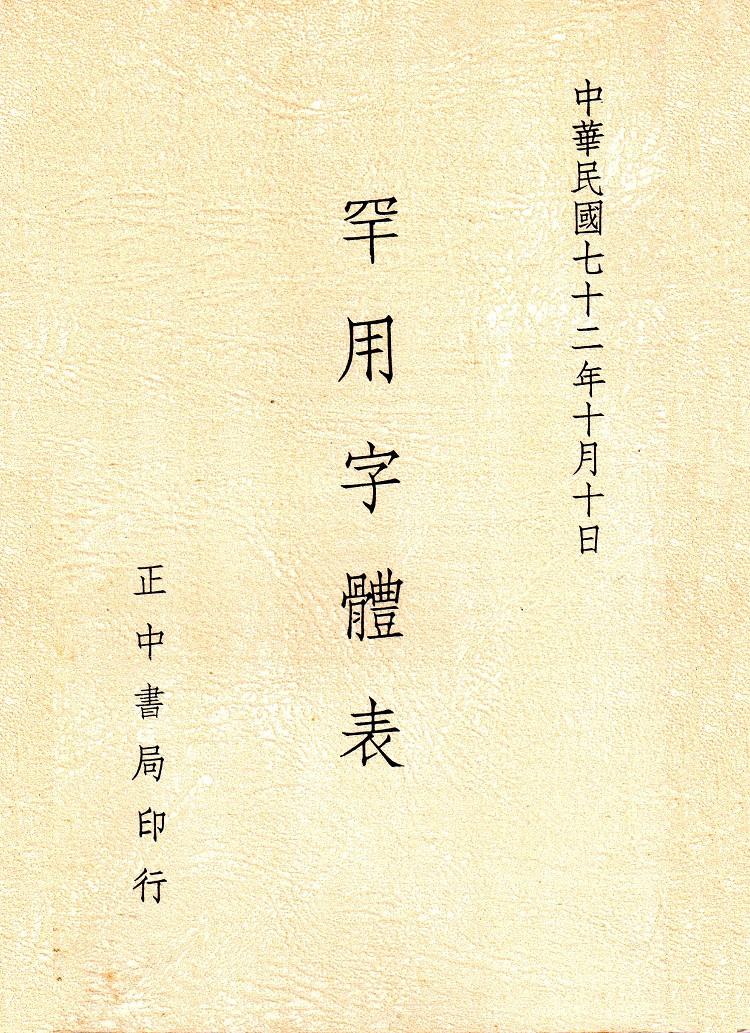 中華民國七十二年十月十日
罕用字體表
正中書局印行